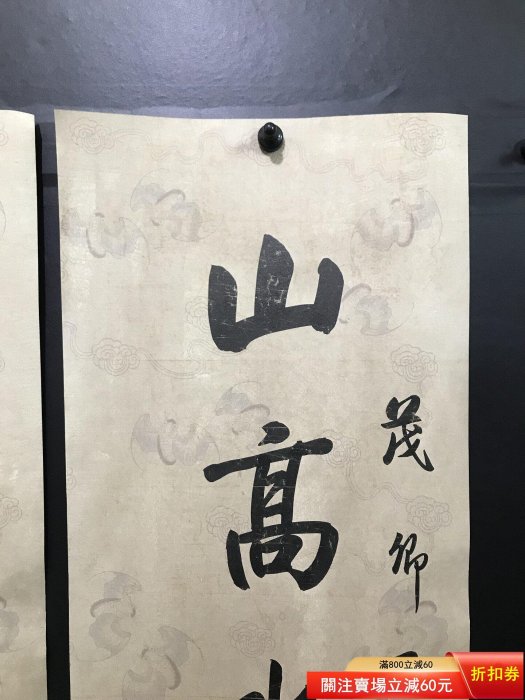 茂卿
山高
滿800立減60
關注賣場立減60元
折扣券